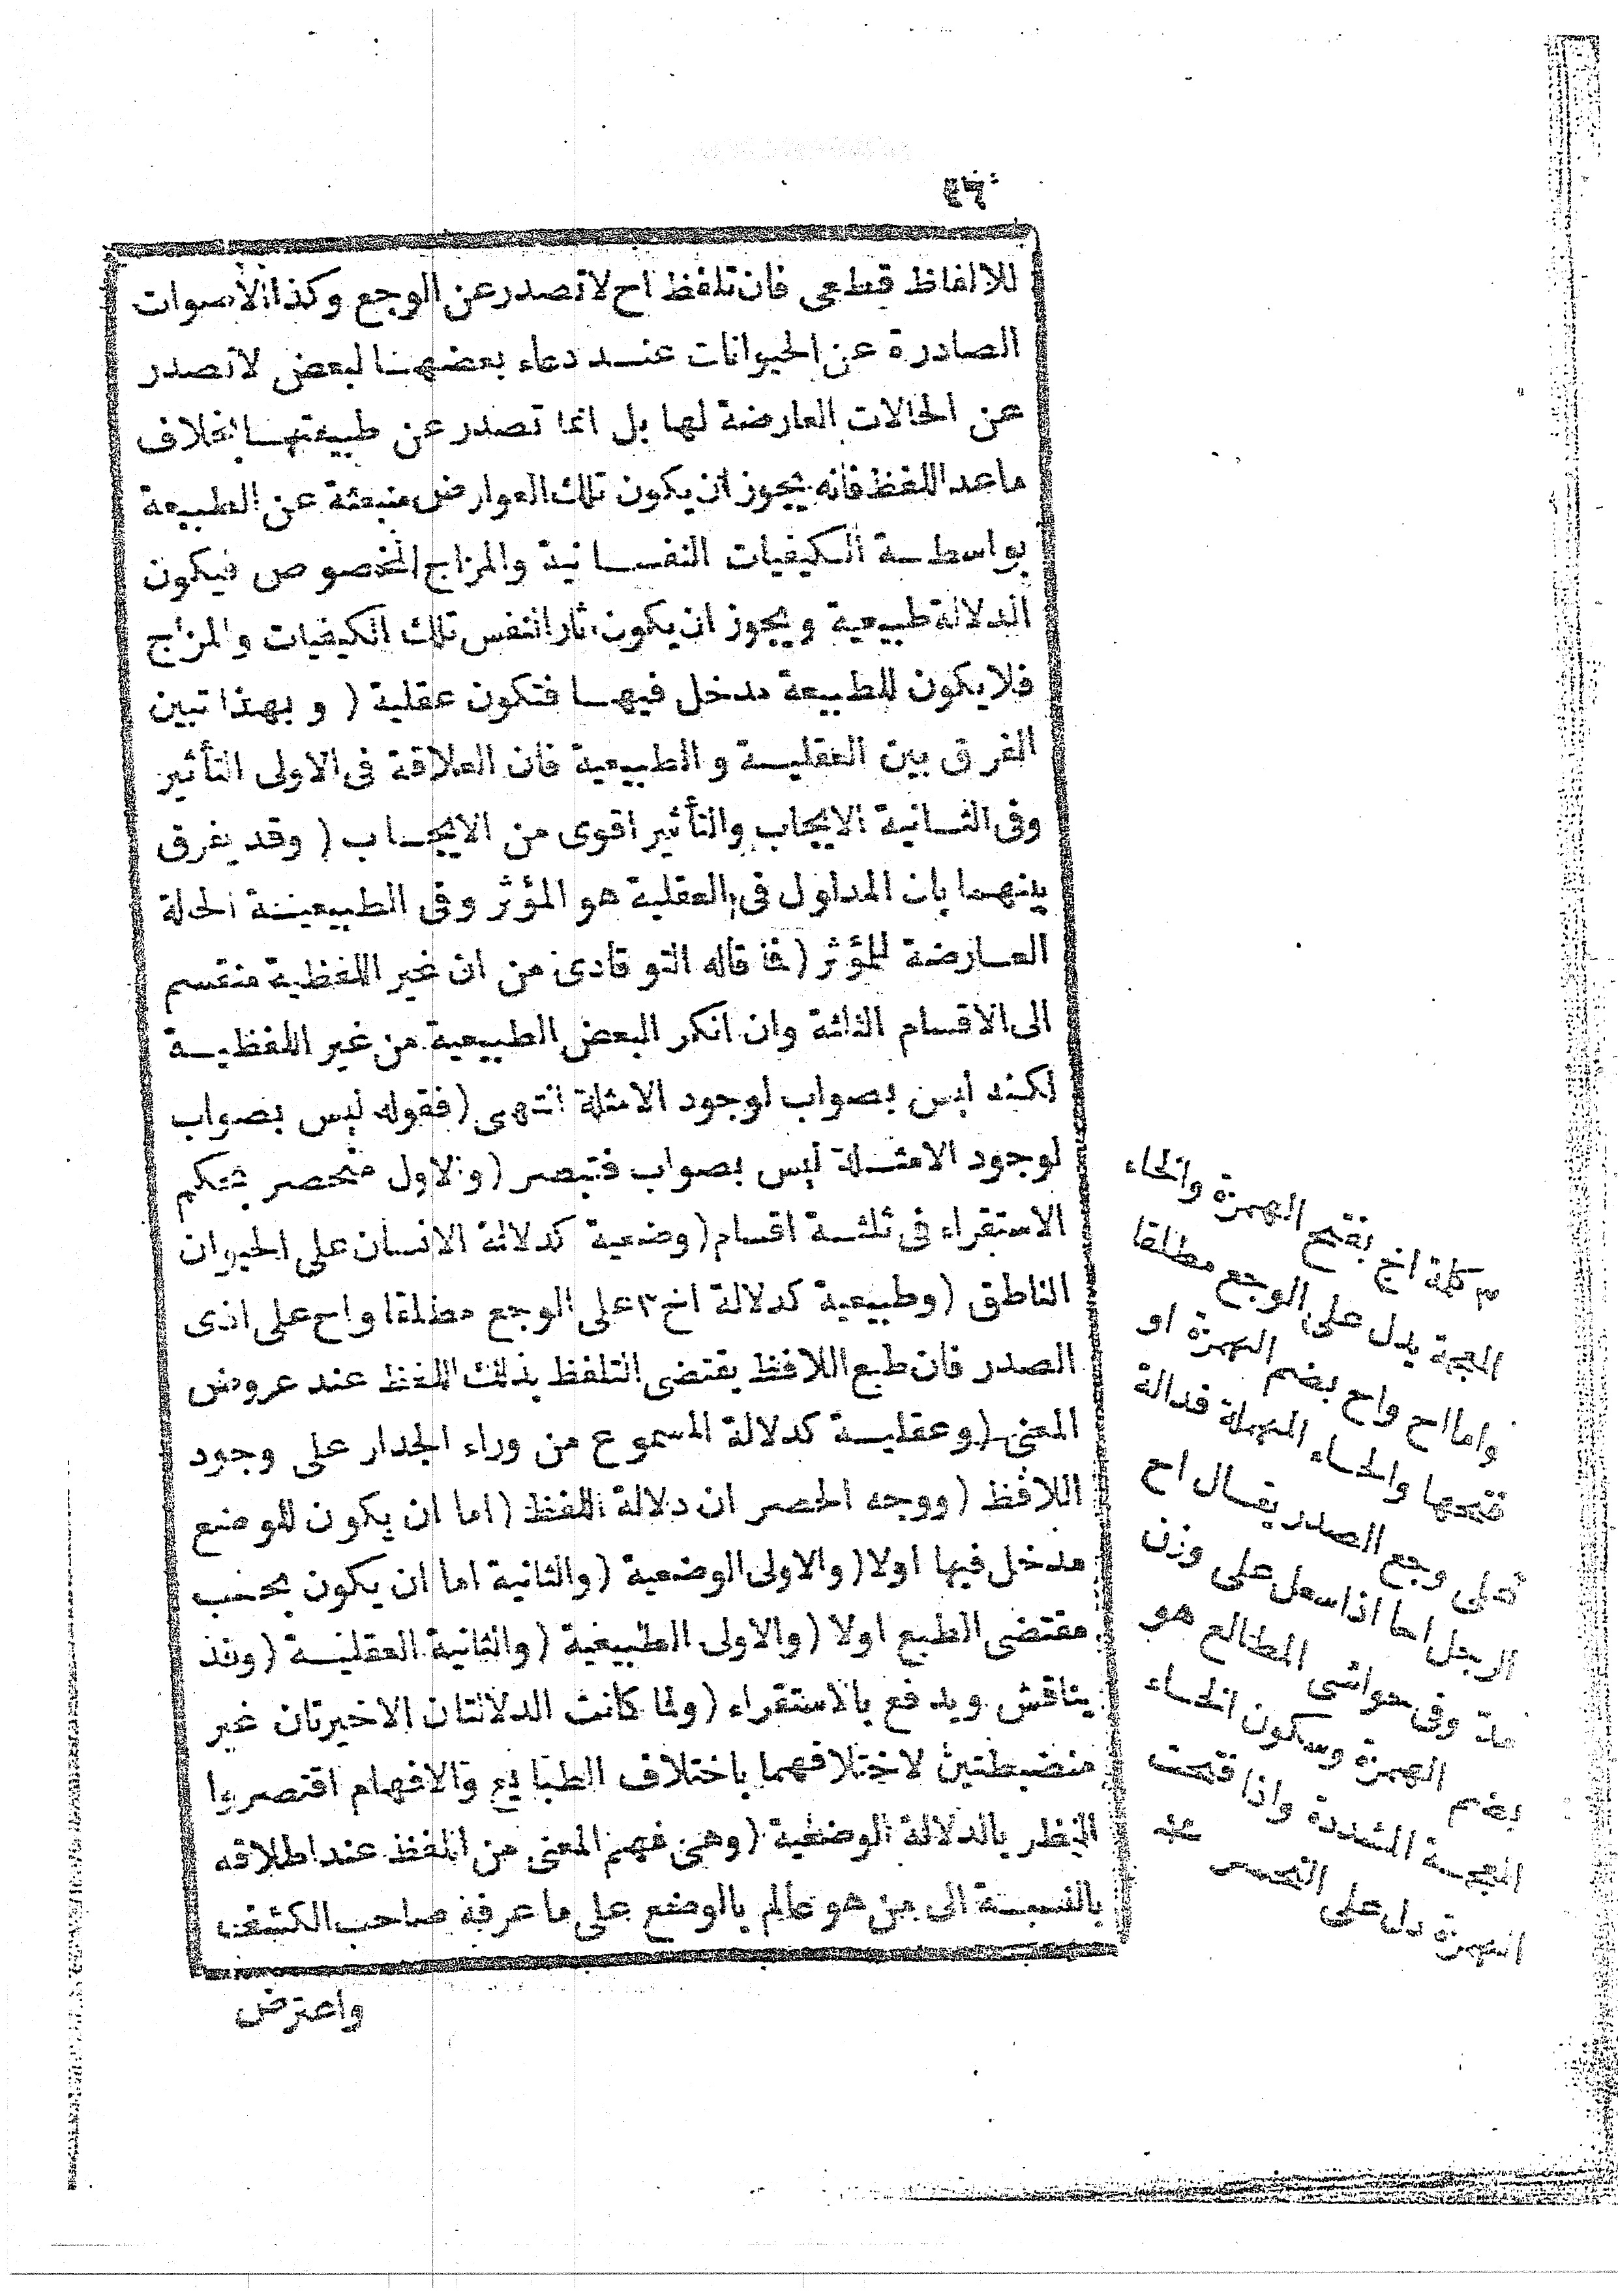 ٤٦
للالفاظ قطعى فان تلفظ اح لا تصدر عن الوجع وكذا الاصوات
الصادرة عن الحيوانات عند دعاء بعضها لبعض لا تصدر
عن الحالات العارضة لها بل انما تصدر عن طبيعتها بخلاف
ماعدا اللفظ فانه يجوز ان يكون تلك العوارض منبعثة عن الطبيعة
بواسطة الكيفيات النفسانية والمزاج المخصوص فيكون
الدلالة طبيعية ويجوز ان يكون اثار النفس تلك الكيفيات والمزاج
فلا يكون للطبيعة مدخل فيها فتكون عقلية ( وبهذا تبين
الفرق بين العقلية والطبيعية فان العلاقة فى الاولى التأثير
وفى الثانية الايجاب والتأثير اقوى من الايجاب ( وقد يفرق
بينهما بان المدلول فى العقلية هو المؤثر وفى الطبيعية الحالة
العارضة للمؤثر ( فما قاله التوقادى من ان غير اللفظية منقسم
الى الاقسام الثلثة وان انكر البعض الطبيعية من غير اللفظية
لكنه ليس بصواب لوجود الامثلة انتهى ( فقوله ليس بصواب
لوجود الامثلة ليس بصواب فتبصر ( والاول منحصر بحكم
الاستقراء فى ثلثة اقسام ( وضعية كدلالة الانسان على الحيوان
الناطق ( وطبيعية كدلالة اخ ٣ على الوجع مطلقا واح على اذى
الصدر فان طبع اللافظ يقتضى التلفظ بذلك اللفظ عند عروض
المعنى ( وعقلية كدلالة المسموع من وراء الجدار على وجود
اللافظ ( ووجه الحصر ان دلالة اللفظ ( اما ان يكون للوضع
مدخل فيها اولا ( والاولى الوضعية ( والثانية اما ان يكون بحسب
مقتضى الطبع اولا ( والاولى الطبيعية ( والثانية العقلية ( وقد
يناقش ويدفع بالاستقراء ( ولما كانت الدلالتان الاخيرتان غير
منضبطتين لاختلافهما باختلاف الطبايع والافهام اقتصروا
النظر بالدلالة الوضعية ( وهى فهم المعنى من اللفظ عند اطلاقه
بالنسبة الى من هو عالم بالوضع على ما عرفه صاحب الكشف
واعترض
٣ كلمة اخ بفتح الهمزة والخاء
المعجمة يدل على الوجع مطلقا
واما اح واح بضم الهمزة او
فتحها والحاء المهملة فدالة
على وجع الصدر يقال اح
الرجل احا اذا سعل على وزن
مد وفى حواشى المطالع هو
بضم الهمزة وسكون الخاء
المعجمة المشددة واذا فتحت
الهمزة دل على التحسر